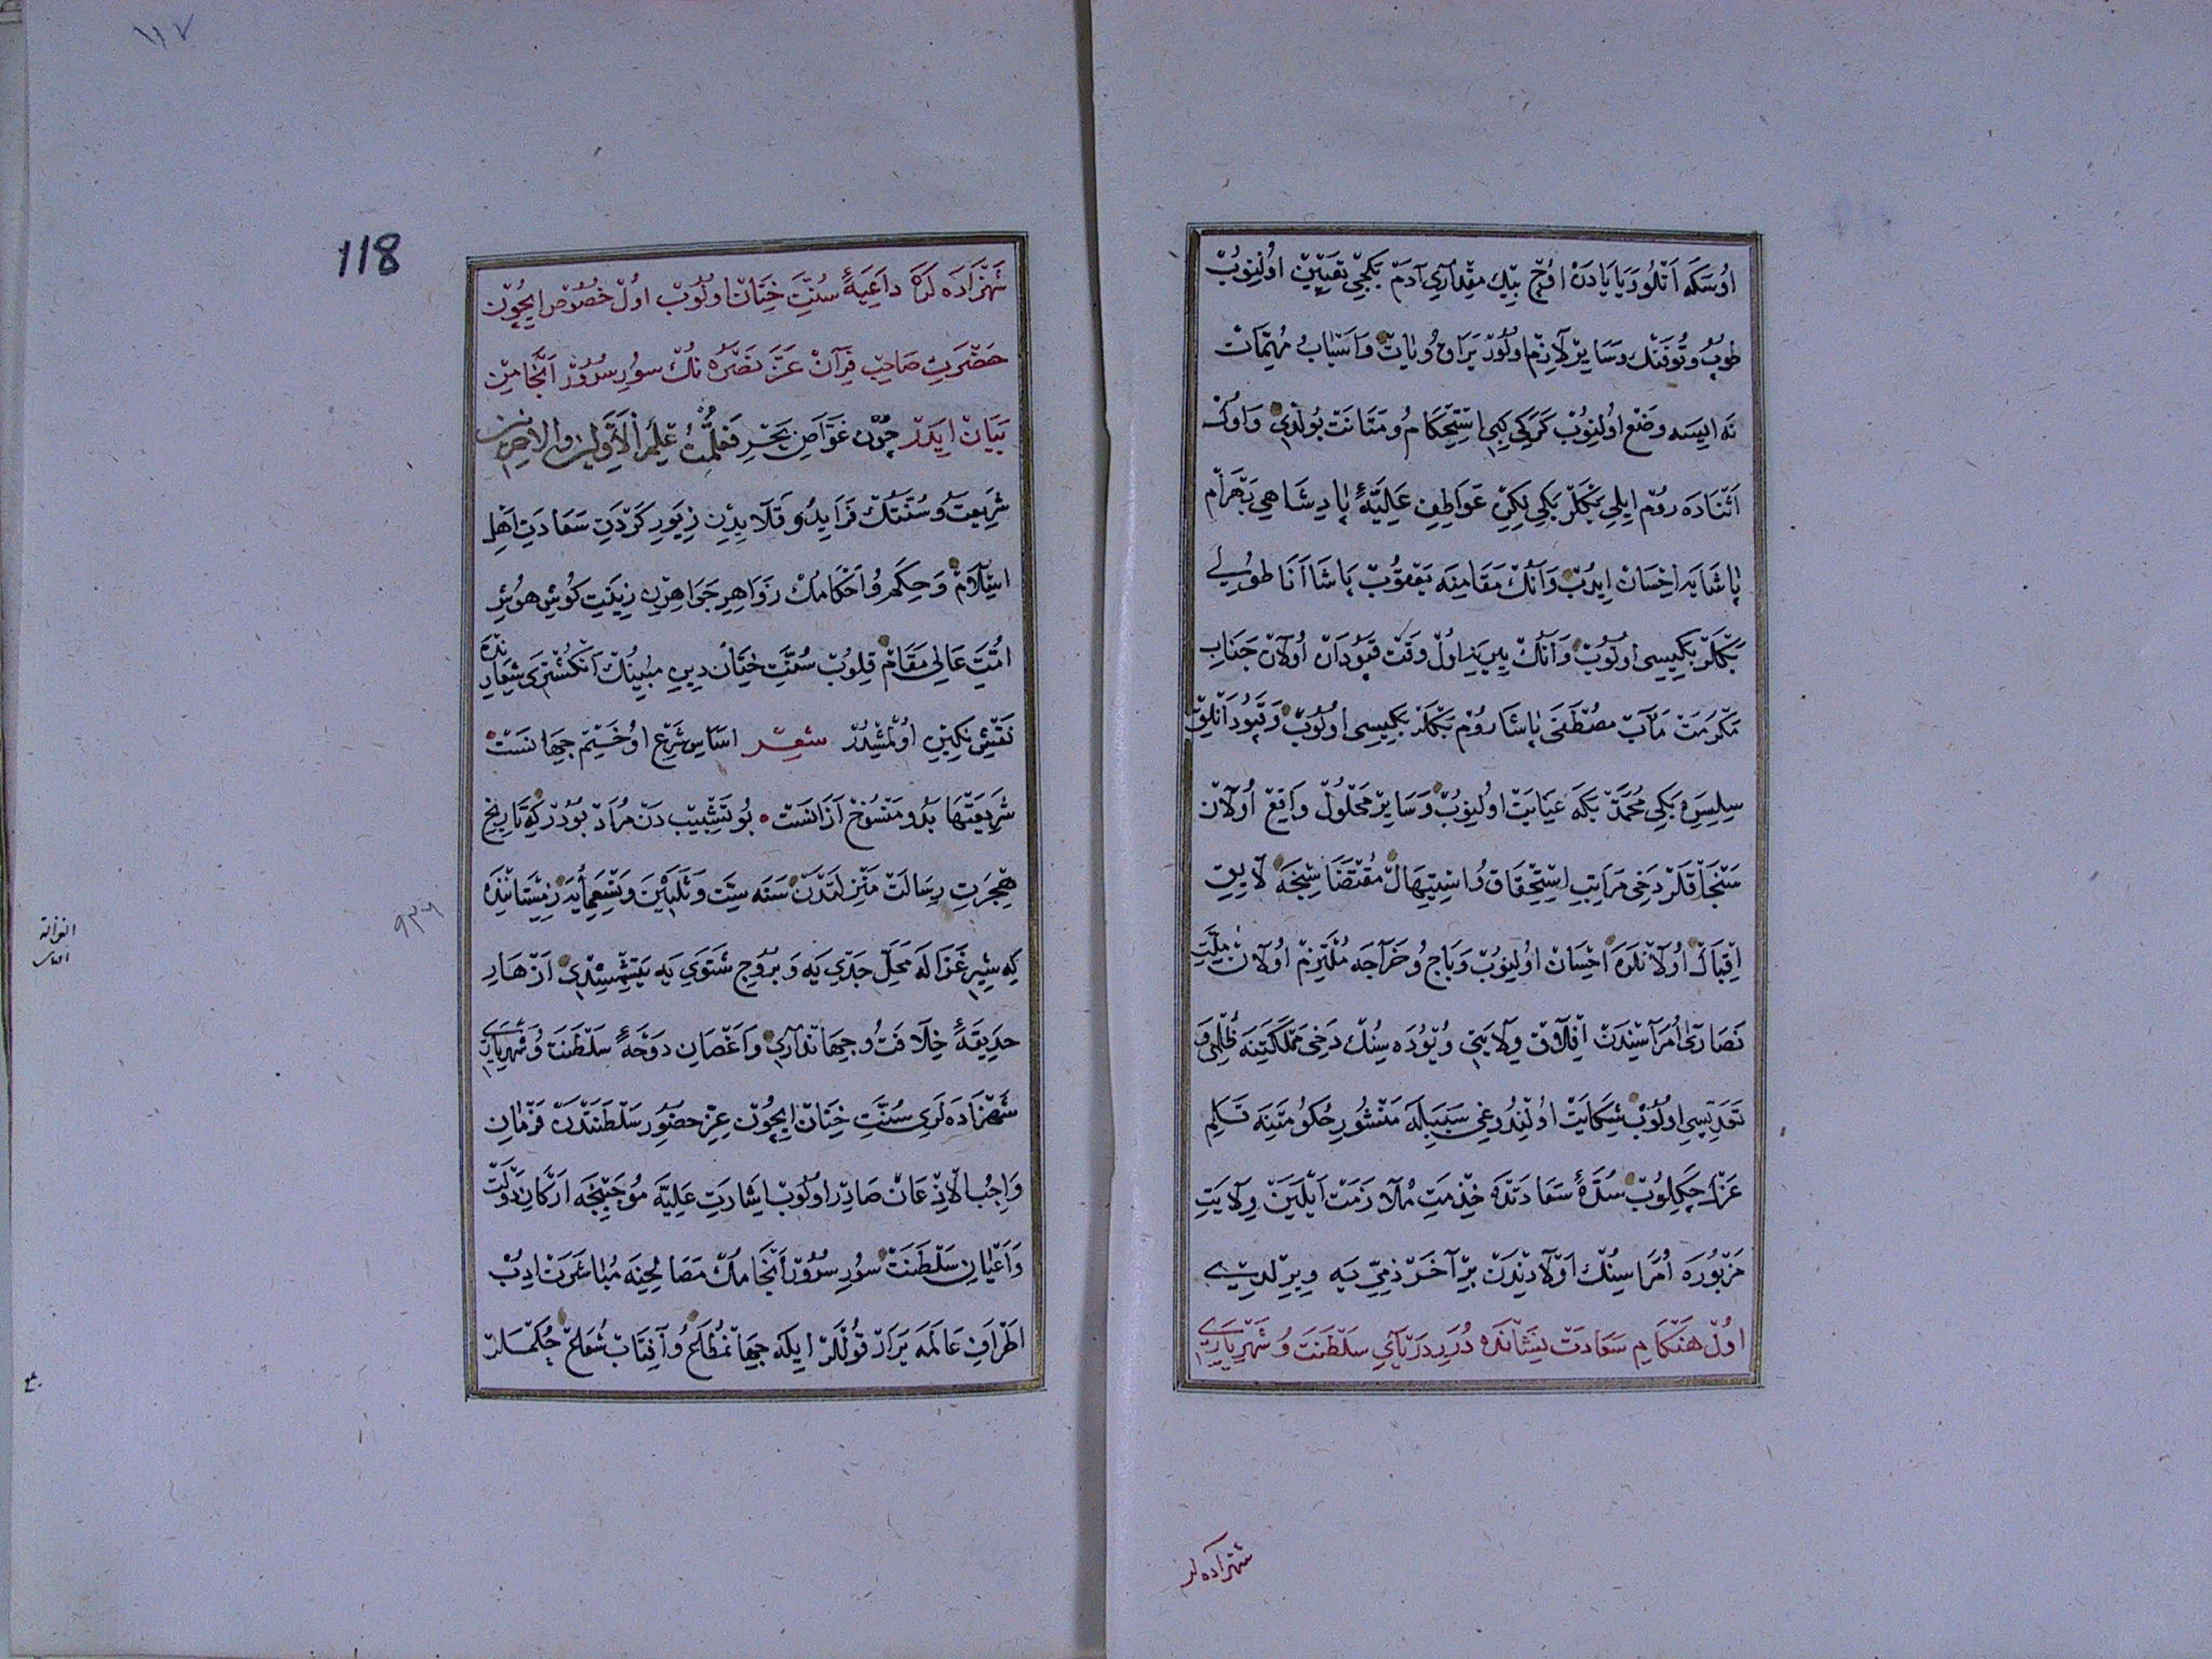 اوُسْكَه اَتْلُو وَيَايَادَنْ اوُچْ بِيكْ مِقْدَارِي آدَمْ بَكْجِي تَعْيِينْ اوُلِنُوبْ
طُوپْ و تُوفَنْكْ وَسَايِرْ لَازِمْ اولُورْ يَرَاقْ وُيَاتْ وَاَسْبَابُ مُهِمَّاتْ
نَه اِيسَه وَضْع اوُلِنُوبْ كَرَكِي كِبِي اِسْتِحْكَامُ و مَتَانَتْ بُولْدِي وَاوُلْ
اَثْنَادَه رُومْ ايلِي بَكْلَرْبَكِي لِكِنْ عَوَاطِفِ عَلِيَّهٔ پَادِشَاهِي بَهْرَامْ
پَاشَايَه اِحْسَانْ اِيدُبْ وَاَنُكْ مَقَامِنَه يَعْقُوبْ پَاشَا اَنَاطُولِي
بَكْلَرْبَكِيسِي اوُلُوبْ وَاَنُكْ يِيرِينَه اوُلْ وَقْتْ قَپُودَانْ اُولَانْ جَنَابِ
مَكْرَمَتْ مَآبْ مُصْطَفَى پَاشَا رُومْ بَكْلَرْبَكِيسِي اوُلُوبْ وَقَپُودَانْلِقْ
سِلِسْتِرَه بَكِي مُحَمَّدْ بَكَه عِنَايَتْ اوُلِنُوبْ وَسَايِرْ مَحْلُولْ وَاقِعْ اُولَانْ
سَنْجَاقْلَرْ دَخِي مَرَاتِبِ اِسْتِحْقَاقْ وُاسْتِيهَالْ مُقْتَضَاسِنْجَه لَايِقِ
اِقْبَالْ اُولَانْلَرَه اِحْسَانْ اوُلِنُوبْ وَبَاج وُخَرَاجَه مُلْتَزِمْ اوُلَانْ مِلَّتِ
نَصَارَى اُمَرَاسِنْدَنْ اِفْلَاقْ وِلَايَتِي وُيْوُدَه سِنُكْ دَخِي مَمْلَكَتِنَه ظُلْمِ وَ
تَعَدِّيسِي اوُلُوبْ شِكَايَتْ اوُلِنْدُوغِي سَبَبِلَه مَنْشُورِ حُكُومَتِنَه قَلَمِ
عَزْلْ چَكِلُوبْ سُدَّهٔ سَعَادَتْدَه خِدْمَتِ مُلَازَمَتْ اَيْلَيَنْ وِلَايَتِ
مَزْبُورَه اُمَرَاسِنُكْ اَوْلَادِنْدَنْ بِرْ آخَرْ ذِمِّي يَه وِيرِلْدِي
اوُلْ هَنْكَامِ سَعَادَتْ نِشَانْدَه دُرَرِ دَرْيَايِ سَلْطَنَتْ وُشَهْرِيَارِي
شهزاده لر
١١٧
118
شَهْزَادَه لَرَه دَاعِيَهٔ سُنَّتِ خِتَانْ اولُوبْ اوُلْ خُصُوصْ ايچُونْ
حَضْرَتِ صَاحِبْ قِرَانْ عَزَّ نَصْرُهُ نُكْ سُورِ سُرُورْ اَنْجَامِنْ
بَيَانْ ايدَرْ چُونْ غَوَّاصِ بَحْرِ فَعَلِمْتُ عِلْمَ الْاَوَّلِينَ وَالْاٰخِرِينَ
شَرِيعَتْ وُسُنَّتُكْ فَرَايِدُ و قَلَايِدِنْ زِيوَرِ كَرْدَنِ سَعَادَتِ اَهْلِ
اسْلَامْ وَحِكَمِ وُاَحْكَامُكْ زَوَاهِرِ جَوَاهِرِنْ زِينَتِ كُوشِ هوُشِ
اُمَّتِ عَالِي مَقَامْ قِلُوبْ سُنَّتِ خِتَانْ دِينِ مُبِينُكْ اَنْكُشْتَرِي شِعَارِنْدَه
نَقْشِ نِكِينِ اوُلْمِشْدُرْ شعر اَسَاسِ شَرْعِ اوُ خَتْمِ جِهَانَسَتْ
شَرِيعَتْهَا بَدُو مَنْسُوخْ اَزَانَسَتْ بُو تَشْبِيبْ دَنْ مُرَادْ بُودُرْكِه تَارِيخِ
هِجْرَتِ رِسَالَتْ مَنْزِلَتْدَنْ سَنَه سِتَّ وَثَلَثِينَ وَتِسْعَمِايَه زِمِسْتَانِنْدَه
٩٣٦
كِه شِيرِ غَزَالَه مَحَلِّ جَدْيِ يَه وَ بُرُوجِ شَتَوِي يَه يَتِشْمِشْدِي اَزْهَارِ
حَدِيقَهٔ خِلَافَتْ وُجِهَانْدَارِي وَاَغْصَانِ دَوْحَهٔ سَلْطَنَتْ وُشَهْرِيَارِي
شَهْزَادَه لَرِي سُنَّتِ خِتَانْ ايچُونْ عِزِّ حضُورِ سَلْطَنَتْدَنْ فَرْمَانِ
وَاجِبُ الْاِذْعَانْ صَادِرْ اوُلُوبْ اِشَارَتِ عَلِيَّه مُوجَبِنْجَه اَرْكَانِ دَوْلَتْ
وَاَعْيَانِ سَلْطَنَتْ سُورِ سُرُورْ اَنْجَامُكْ مَصَالِحِنَه مُبَاشَرَتْ ادِبْ
اَطْرَافِ عَالَمَه يَرَارْ قُوللَرْ ايلَه جِهَانْمُطَاعْ وُآفِتَابْ شُعَاعْ حُكْمْلَرْ